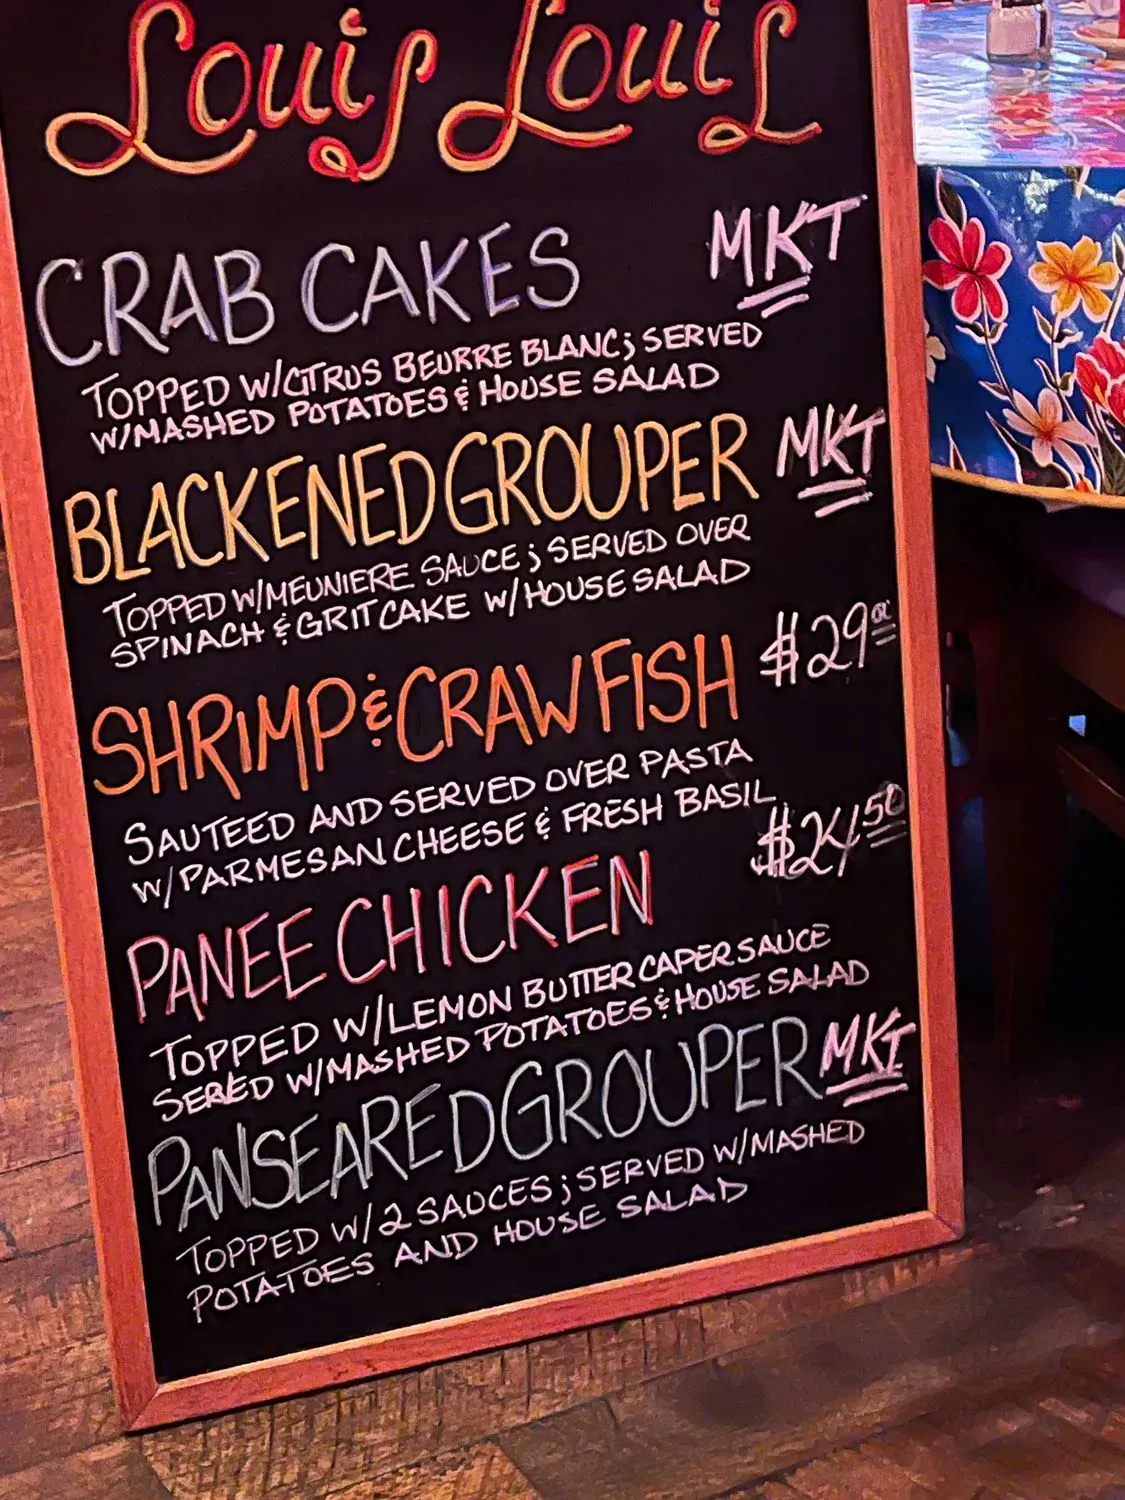 Louis Louis
CRAB CAKES MKT
TOPPED W/CITRUS BEURRE BLANC; SERVED
W/MASHED POTATOES & HOUSE SALAD
BLACKENED GROUPER MKT
TOPPED W/MEUNIERE SAUCE; SERVED OVER
SPINACH & GRITCAKE W/HOUSE SALAD
SHRIMP & CRAWFISH $29
SAUTEED AND SERVED OVER PASTA
W/PARMESAN CHEESE & FRESH BASIL
PANEE CHICKEN $24.50
TOPPED W/LEMON BUTTER CAPER SAUCE
SERVED W/MASHED POTATOES & HOUSE SALAD
PANSEARED GROUPER MKT
TOPPED W/2 SAUCES; SERVED W/MASHED
POTATOES AND HOUSE SALAD